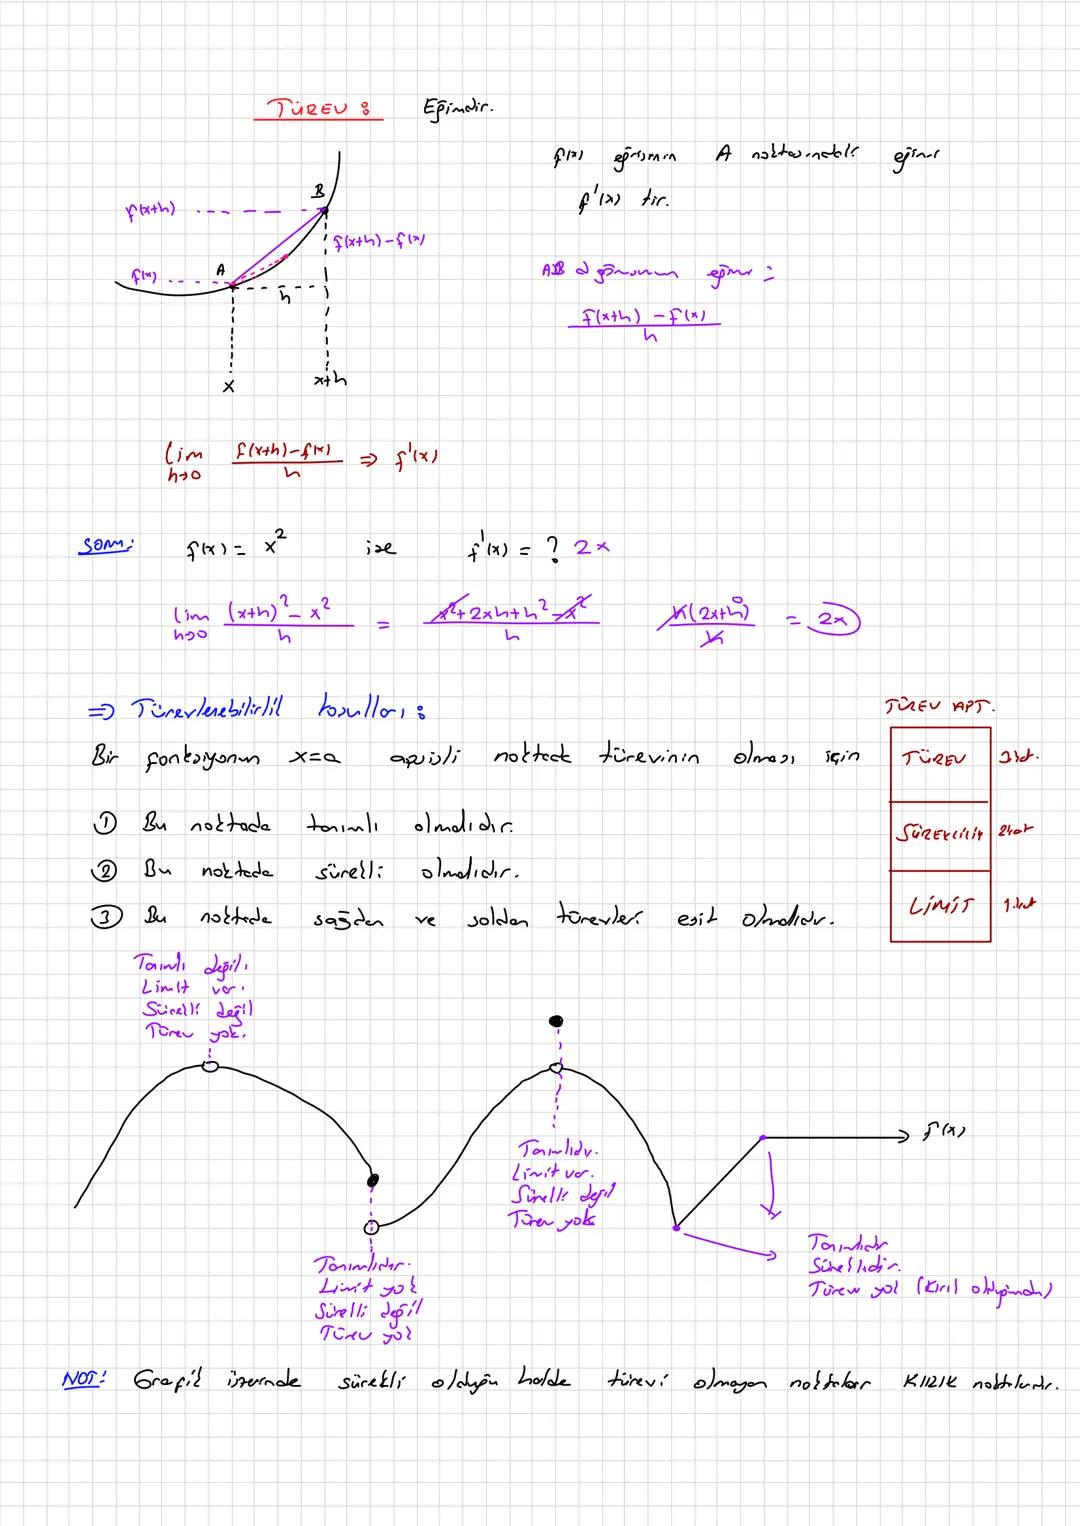 TÜREV : Eğimdir.
f(x) eğrisinin A noktasındaki eğimi
f'(x) tir.
f(x+h)
B
f(x+h)-f(x)
f(x)
A
h
x
x+h
AB doğrusunun eğimi :
f(x+h) - f(x)
h
lim f(x+h)-f(x) ⇒ f'(x)
h→0 h
SORU: f(x) = x² ise f'(x) = ? 2x
lim (x+h)² - x² = x²+2xh+h²-x² h(2x+h) 0 = 2x
h→0 h h h
⇒ Türevlenebilirlik koşulları :
Bir fonksiyonun x=a apsisli noktada türevinin olması için
① Bu noktada tanımlı olmalıdır.
② Bu noktada sürekli olmalıdır.
③ Bu noktada sağdan ve soldan türevleri eşit olmalıdır.
TÜREV APT.
TÜREV 3.kat.
SÜREKLİLİK 2.kat
LİMİT 1.kat
Tanımlı değil.
Limit var.
Sürekli değil
Türev yok.
Tanımlıdır.
Limit yok
Sürekli değil
Türev yok
Tanımlıdır.
Limit var.
Sürekli değil
Türev yok
f(x)
Tanımlıdır
Süreklidir.
Türev yok (Kırık olduğundan)
NOT: Grafik üzerinde sürekli olduğu halde türevi olmayan noktalar KIRIK noktalardır.